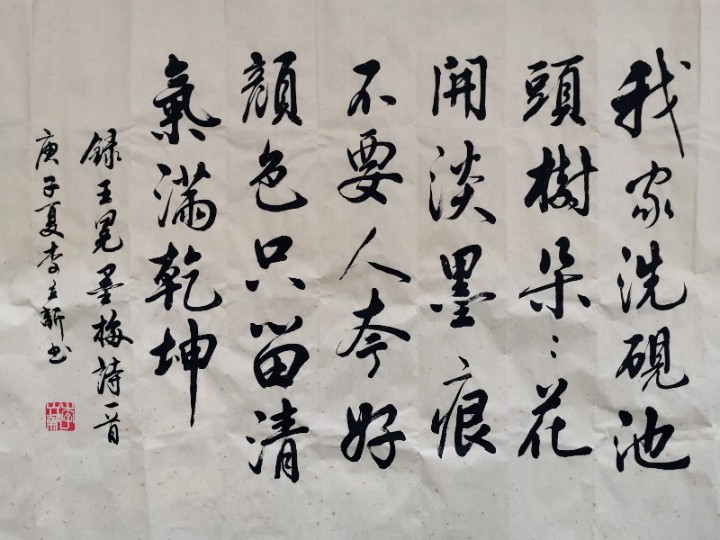 我家洗硯池
頭樹朵〻花
開淡墨痕
不要人夸好
顔色只留清
氣滿乾坤
録王冕墨梅詩一首
庚子夏李立新书